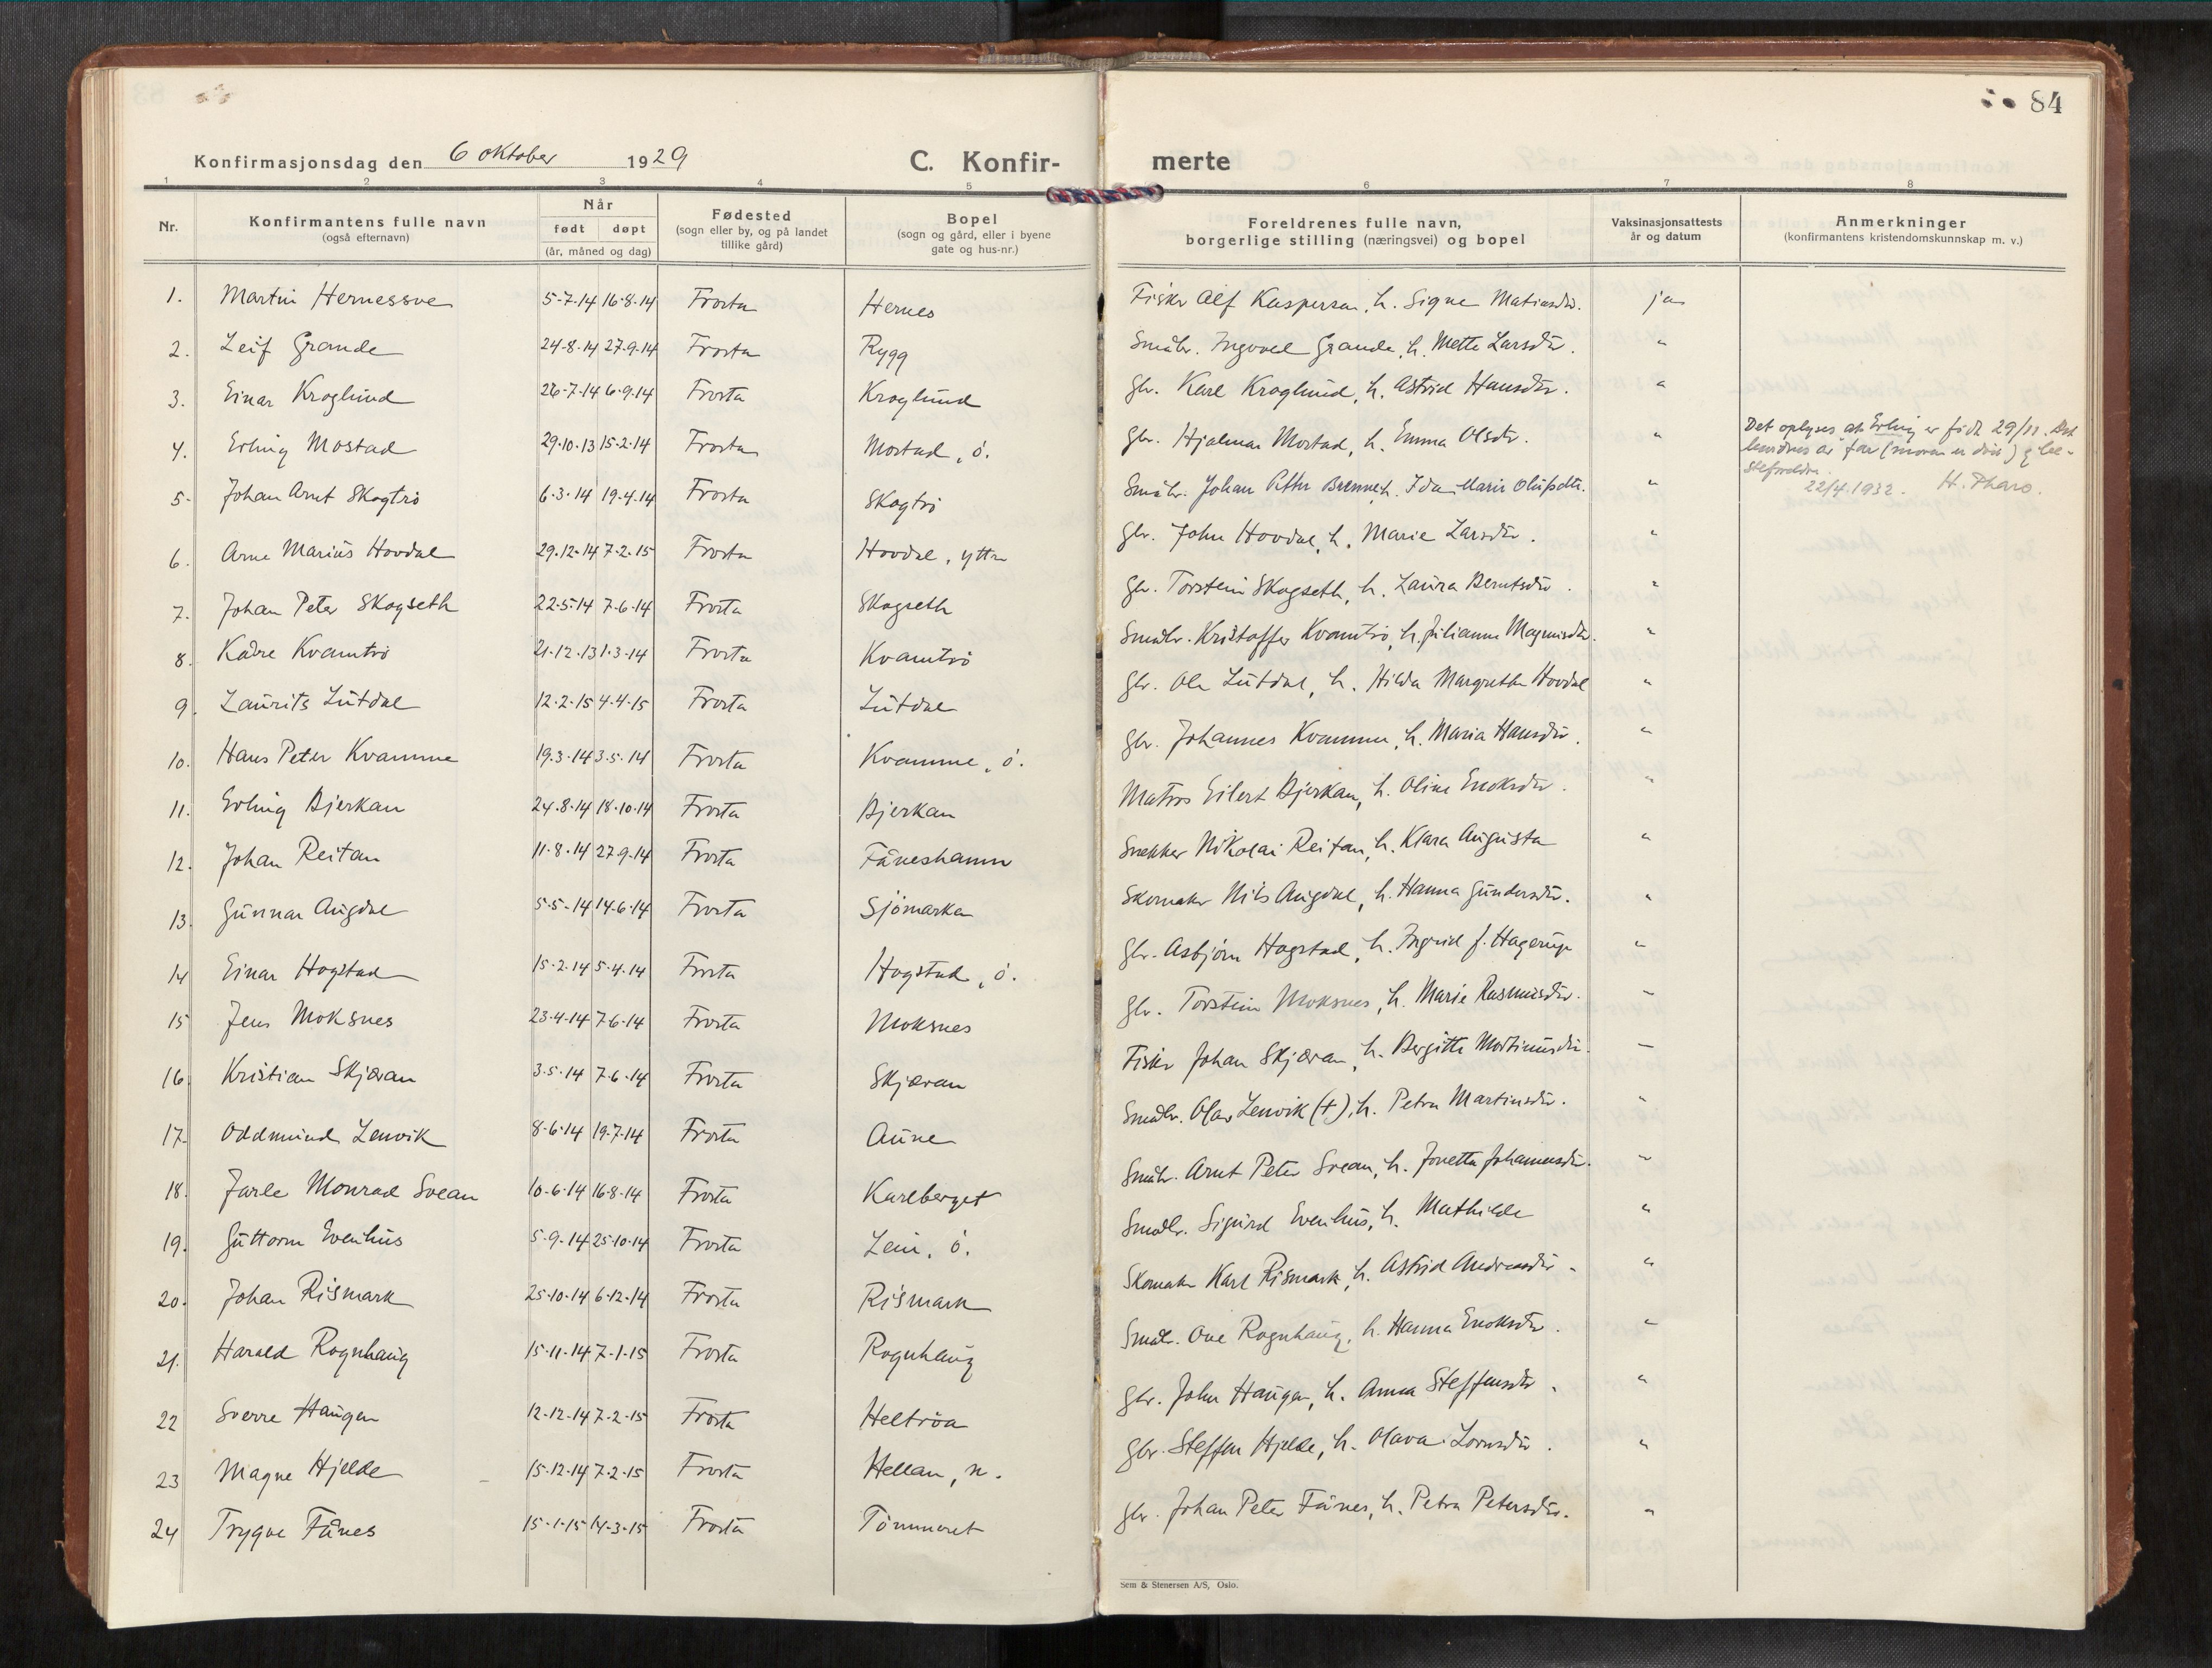 84
Konfirmasjonsdag den 6 oktober 1929 C. Konfir- merte
1 2 3 4 5 6 7 8
Nr. Konfirmantens fulle navn (også efternavn) Når født døpt (år, måned og dag) Fødested (sogn eller by, og på landet tillike gård) Bopel (sogn og gård, eller i byene gate og hus-nr.) Foreldrenes fulle navn, borgerlige stilling (næringsvei) og bopel Vaksinasjonsattests år og datum Anmerkninger (konfirmantens kristendomskunnskap m. v.)
1. Martin Hernessve 5-7-14 16-8-14 Frosta Hernes Fisker Alf Kaspersen, h. Signe Matiasdtr. ja
2. Leif Grande 24-8-14 27-9-14 Frosta Rygg Småbr. Ingvael Grande, h. Mette Larsdtr. "
3. Einar Kroglund 26-7-14 6-9-14 Frosta Kroglund Gbr. Karl Kroglund, h. Astrid Hansdtr. "
4. Erling Mostad 29-10-13 15-2-14 Frosta Mostad, ö. Gbr. Hjalmar Mostad, h. Emma Olsdtr. " Det oplyses at Erling er født 29/11. Det
av far (moren er død) og be-
22/4.1932. H. Tharo.
5. Johan Arnt Skogtrö 6-3-14 19-4-14 Frosta Skogtrö Småbr. Johan Petter Brenne, h. Ida Marie Olufsdtr. "
6. Arne Marius Hovdal 29-12-14 7-2-15 Frosta Hovdal, yttre Gbr. John Hovdal, h. Marie Larsdtr. "
7. Johan Peter Skogseth 22-5-14 7-6-14 Frosta Skogseth Gbr. Torstein Skogseth, h. Laura Berntsdtr. "
8. Kåre Kvamtrö 21-12-13 1-3-14 Frosta Kvamtrö Småbr. Kristoffer Kvamtrö, h. Julianna Magnusdtr. "
9. Laurits Lutdal 12-2-15 4-4-15 Frosta Lutdal Gbr. Ole Lutdal, h. Hilda Margrethe Hovdal "
10. Hans Peter Kvamme 19-3-14 3-5-14 Frosta Kvamme, ö. Gbr. Johannes Kvamme, h. Maria Hansdtr. "
11. Erling Bjerkan 24-8-14 18-10-14 Frosta Bjerkan Matros Eilert Bjerkan, h. Oline Enoksdtr. "
12. Johan Reitan 11-8-14 27-9-14 Frosta Fåneshamn Snekker Nikolai Reitan, h. Klara Augusta "
13. Gunnar Augdal 5-5-14 14-6-14 Frosta Sjömarka Skomaker Nils Augdal, h. Hanna Gundersdtr. "
14 Einar Hogstad 15-2-14 5-4-14 Frosta Hogstad, ö. Gbr. Asbjörn Hogstad, h. Ingrid f. Hagerup "
15 Jens Moksnes 23-4-14 7-6-14 Frosta Moksnes Gbr. Torstein Moksnes, h. Marie Rasmusdtr. "
16. Kristian Skjæran 3-5-14 7-6-14 Frosta Skjæran Fisker Johan Skjæran, h. Bergitte Mortinusdtr. "
17. Oddmund Lenvik 8-6-14 19-7-14 Frosta Aune Småbr. Olav Lenvik (†), h. Petra Martinsdtr. "
18. Jarle Monrad Svean 10-6-14 16-8-14 Frosta Karlberget Småbr. Arnt Peter Svean, h. Jonetta Johannesdtr. "
19. Guttorm Evenhus 5-9-14 25-10-14 Frosta Lein, ö. Småbr. Sigurd Evenhus, h. Mathilde "
20. Johan Rismark 25-10-14 6-12-14 Frosta Rismark Skomaker Karl Rismark, h. Astrid Andreasdtr. "
21. Harald Rognhaug 15-11-14 7-1-15 Frosta Rognhaug Småbr. Ove Rognhaug, h. Hanna Enoksdtr. "
22 Sverre Haugen 12-12-14 7-2-15 Frosta Heltröa Gbr. John Haugen, h. Anna Steffensdtr. "
23 Magne Hjelde 15-12-14 7-2-15 Frosta Hellan, n. Gbr. Steffen Hjelde, h. Olava Lornsdtr. "
24 Trygve Fånes 15-1-15 14-3-15 Frosta Tömmeret Gbr. Johan Peter Fånes, h. Petra Petersdtr. "
Sem & Stenersen A/S, Oslo.